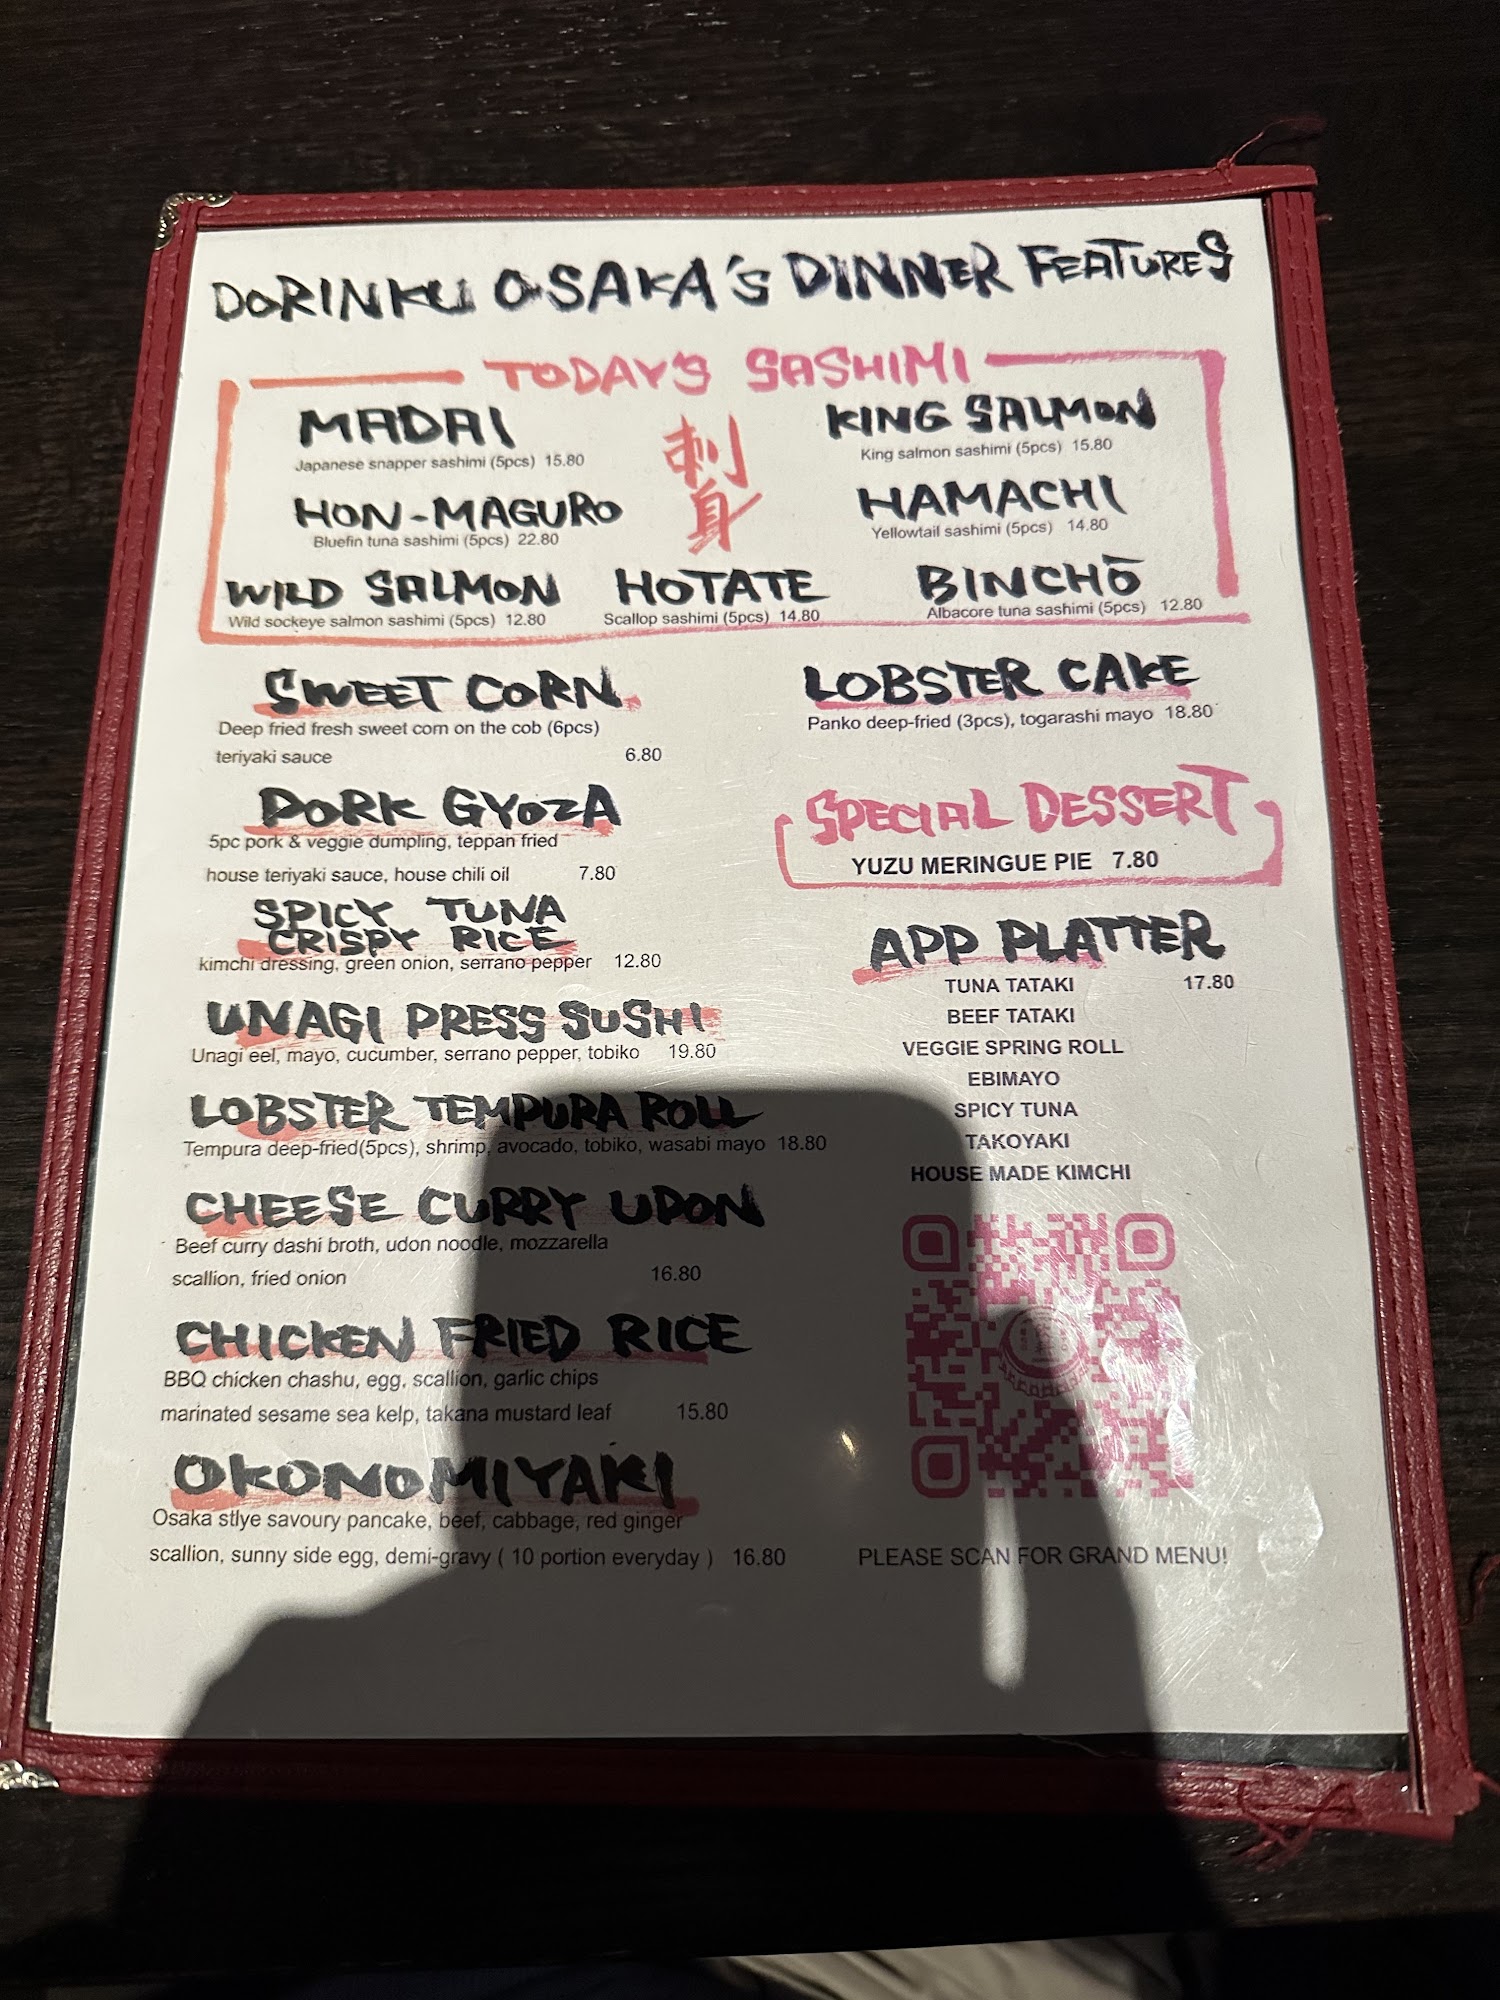 DORINKU OSAKA'S DINNER FEATURES
TODAY'S SASHIMI
刺身
MADAI
Japanese snapper sashimi (5pcs) 15.80
KING SALMON
King salmon sashimi (5pcs) 15.80
HON-MAGURO
Bluefin tuna sashimi (5pcs) 22.80
HAMACHI
Yellowtail sashimi (5pcs) 14.80
WILD SALMON
Wild sockeye salmon sashimi (5pcs) 12.80
HOTATE
Scallop sashimi (5pcs) 14.80
BINCHŌ
Albacore tuna sashimi (5pcs) 12.80
SWEET CORN
Deep fried fresh sweet corn on the cob (6pcs)
teriyaki sauce 6.80
PORK GYOZA
5pc pork & veggie dumpling, teppan fried
house teriyaki sauce, house chili oil 7.80
SPICY TUNA
CRISPY RICE
kimchi dressing, green onion, serrano pepper 12.80
UNAGI PRESS SUSHI
Unagi eel, mayo, cucumber, serrano pepper, tobiko 19.80
LOBSTER TEMPURA ROLL
Tempura deep-fried(5pcs), shrimp, avocado, tobiko, wasabi mayo 18.80
CHEESE CURRY UDON
Beef curry dashi broth, udon noodle, mozzarella
scallion, fried onion 16.80
CHICKEN FRIED RICE
BBQ chicken chashu, egg, scallion, garlic chips
marinated sesame sea kelp, takana mustard leaf 15.80
OKONOMIYAKI
Osaka stlye savoury pancake, beef, cabbage, red ginger
scallion, sunny side egg, demi-gravy ( 10 portion everyday ) 16.80
LOBSTER CAKE
Panko deep-fried (3pcs), togarashi mayo 18.80
SPECIAL DESSERT
YUZU MERINGUE PIE 7.80
APP PLATTER
TUNA TATAKI 17.80
BEEF TATAKI
VEGGIE SPRING ROLL
EBIMAYO
SPICY TUNA
TAKOYAKI
HOUSE MADE KIMCHI
PLEASE SCAN FOR GRAND MENU!